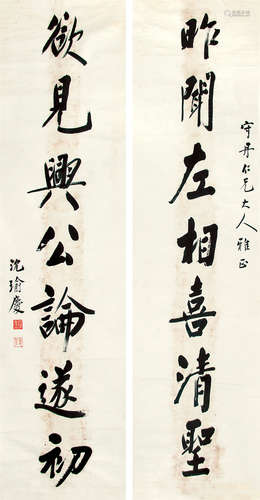 守丹仁兄大人雅正
昨聞左相喜清聖
欲見興公論遂初
沈瑜慶